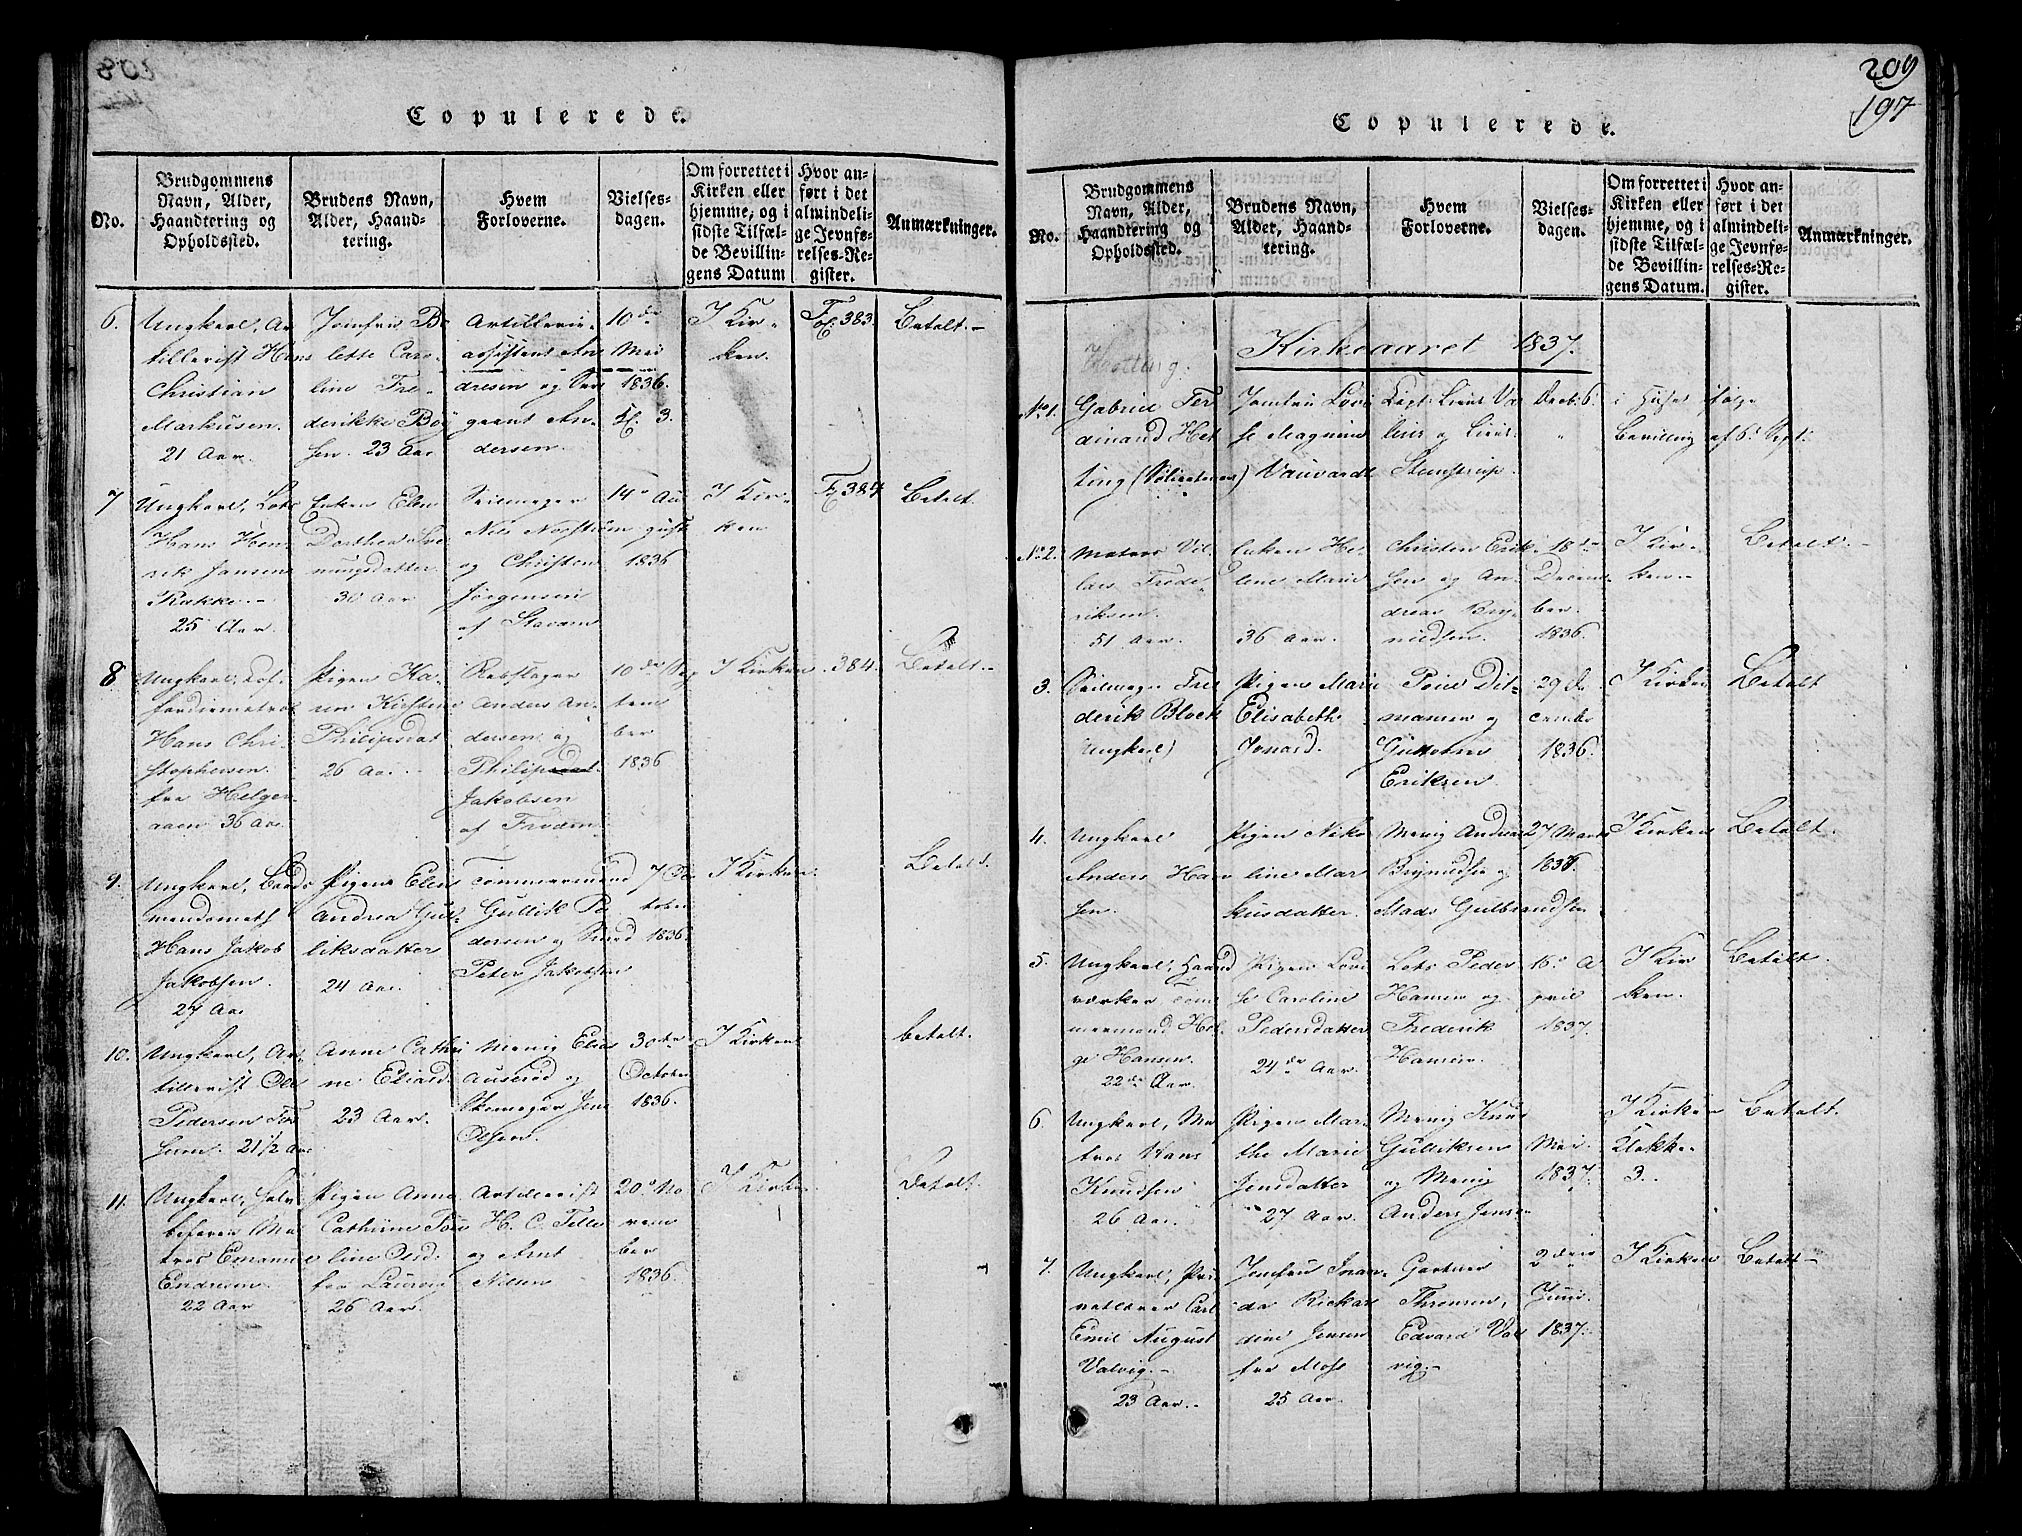 Copulerede.
No.
Brudgommens
Navn, Alder,
Haandtering og
Opholdssted.
Brudens Navn,
Alder, Haand-
tering.
Hvem
Forloverne.
Vielses-
dagen.
Om forrettet i
Kirken eller
hjemme, og i
sidste Tilfæl-
de Bevillin-
gens Datum
Hvor an-
ført i det
almindeli-
ge Jevnfø-
relses-Re-
gister.
Anmærkninger.
6.
Ungkarl, Ar
tillerist Hans
Christian
Markusen.
21 Aar.
Jomfru Bo
lette Caro-
line Fre-
derikke Böy
sen. 23 Aar
Artillerie-
assistent An
dresen og Ser
geant An-
dersen.
10de
Mai
1836.
Kl. 3.
I Kir-
ken.
Fol. 383.
Betalt.-
7
Ungkarl, Lots
Hans Hen-
rik Jansen
Rakke.-
25 Aar.
Enken Elen
Dorthea
30 Aar
Seilmager
Nils
og Christen
Jörgensen
af Stavern
14de Au
gust
1836
I Kir-
ken
Fol. 384
Betalt.
8
Ungkarl, Cof-
fardiematros
Hans Chri-
stophersen
fra Helger-
aaen 36 Aar.
Pigen Ka-
ren Kirstine
Philipsdat
26 Aar.-
Rebslager
Anders An-
dersen og
Philip
Jakobsen
af Freden
10de Sep
tem
ber
1836
I Kirken
384.
Betalt.-
9.
Ungkarl, Baads
mandsmath
Hans Jakob
Jakobsen.
27 Aar
Pigen Elen
Andrea Gul-
liksdatter
24 Aar.
Tömmermand
Gullik Pe-
dersen og Smed
Peter Jakobsen
7 Oc
tober
1836.
I Kirken.
Betalt.
10.
Ungkarl, Ar-
tillerist Ole
Pedersen Fos
sum. 21 1/2 Aar
Anne Cathri
ne Eliasd.
23 Aar.
Menig Elias
Auseröd og
Skomager Jens
Olsen.
30te
October
1836.
I Kirken
betalt.
11.
Ungkarl, halv
befaren Ma
tros Emanuel
Endresen.
22 Aar
Pigen Anne
Cathrine Pau
line Olsd.
fra Laurvig
26 Aar.
Artillerist
H. C. Telle
og Arnt
Nilsen
20de No
vem
ber
1836.
I Kirken
Betalt.
209
197
Copulerede.
No.
Brudgommens
Navn, Alder,
Haandtering og
Opholdssted.
Brudens Navn,
Alder, Haand-
tering.
Hvem
Forloverne.
Vielses-
dagen.
Om forrettet i
Kirken eller
hjemme, og i
sidste Tilfæl-
de Bevillin-
gens Datum.
Hvor an-
ført i det
almindeli-
ge Jevnfø-
relses-Re-
gister.
Anmærkninger.
Hetting.
Kirkeaaret 1837.
No 1.
Gabriel Fer
dinand Het
ting
Jomfru Lovi
se Magnine
Vauvardt
Capt. Lieut.
og Lieut.
Stenstrup.
Decb. 6.
i Huset ifølge
Bevilling af 6. Sept.
No 2.
Matros Vil-
las Frede-
riksen.
51 Aar.
Enken He-
lene Marie
36 Aar.
Christen Erik-
sen og An-
dreas Bry-
nildsen.
18de
Decem-
ber.
1836.
I Kir-
ken.-
Betalt.-
3.
Seilmager Fre
derik Block
(Ungkarl)
Pigen Marie
Elisabeth
Jonasd.
Poul Dit-
mansen og
Guttorm
Eriksen
29 De
cember
1836.
I Kirken
Betalt
4.
Ungkarl
Anders Han
sen.
Pigen Niko
line Mar
kusdatter.
Menig Andreas
Brynildsen og
Mads Gulbrandsen
27 Marts
I Kirken
Betalt.
5.
Ungkarl, Haand
værker Töm
mermand Hel-
ge Hansen.
22de Aar.
Pigen Lovi
se Caroline
Pedersdatter
24de Aar.
Lots Peder
Hansen og
Frederik
Hansen.
16de A
pril
1837.
I Kir
ken.
Betalt.
6
Ungkarl, Ma
tros Hans
Knudsen
26 Aar.
Pigen Mar-
the Marie
Jensdatter
27 Aar.
Menig Knud
Gulliksen
og Menig
Anders Jensen
Mai
1837.
I Kirken
Klokke
3.
Betalt.
7.
Ungkarl, Pri-
vatlærer Carl
Emil August
Valvig.-
23 Aar.-
Jomfru Aman-
da Rickar
dine Jensen
fra Moss
25 Aar.
Gartner
Thronsen,
Edvard Val
vig.-
2den
Juni
1837.
I Kirken
Betalt.-